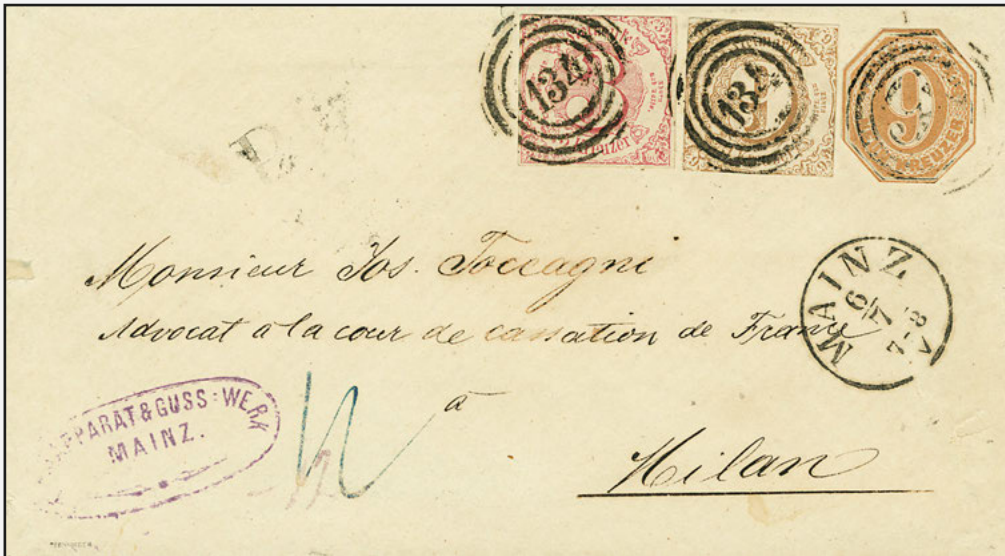 134
134
9
KREUZER
Kreuzer
Monsieur Jos. Toccagni
Advocat à la cour de cassation de France
à
Milan
MAINZ
6/7
7-8
APPARAT & GUSS=WERK
MAINZ.